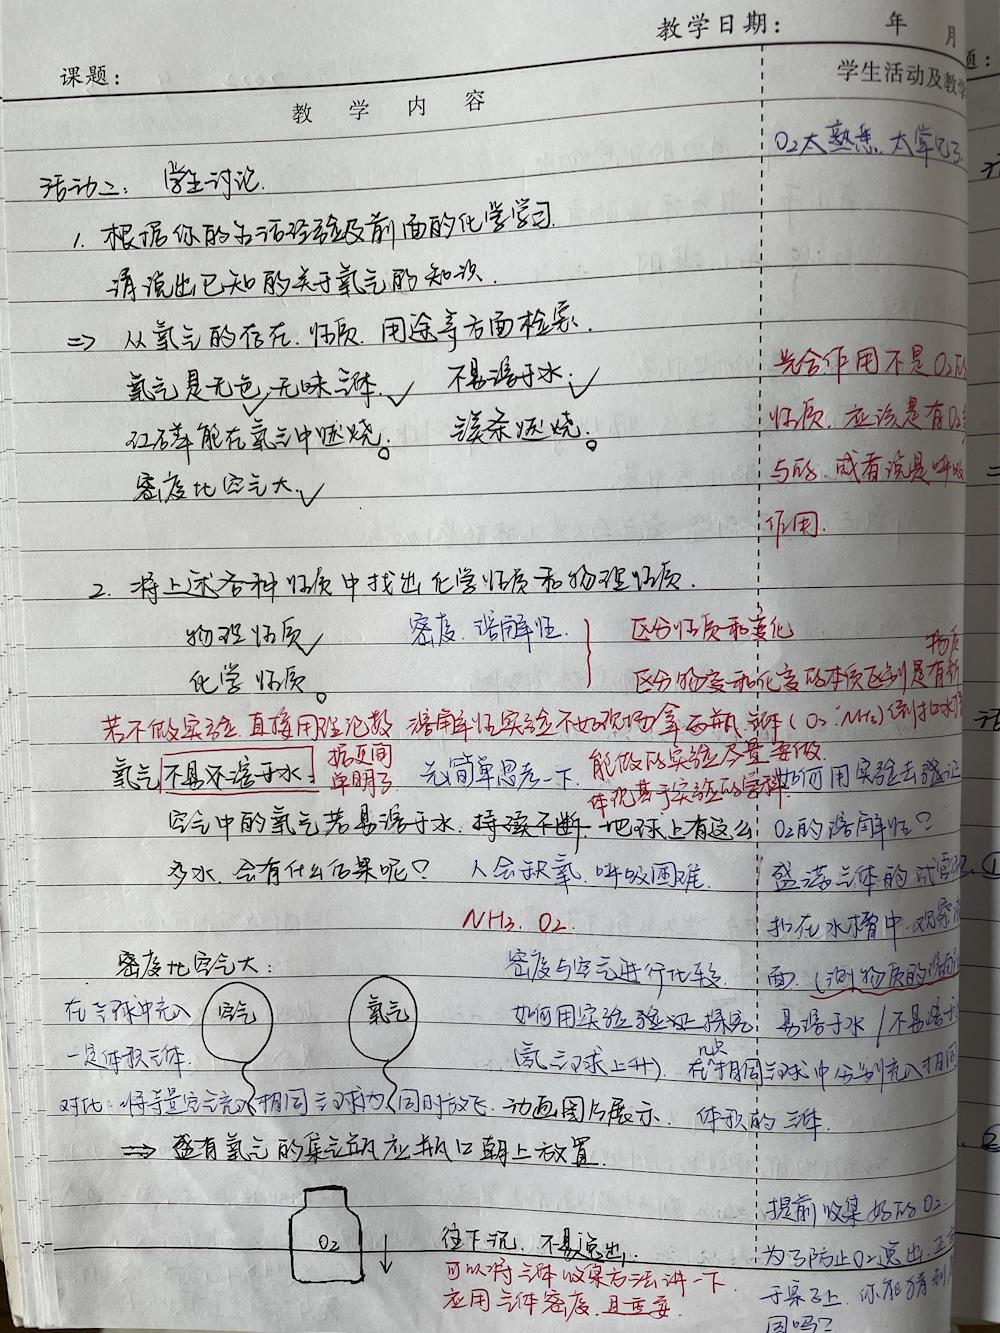 教学日期： 年 月
课题：
教 学 内 容
学生活动及教学
O2太熟悉、太常见了.
活动二： 学生讨论.
1. 根据你的生活经验及前面的化学学习.
请说出已知的关于氧气的知识.
⇒ 从氧气的存在、性质、用途等方面检索.
氧气是无色,无味气体. ✓ 不易溶于水. ✓
红磷能在氧气中燃烧。 镁条燃烧。
密度比空气大. ✓
光合作用不是O2的
性质. 应该是有O2参
与的. 或者说是呼吸
作用.
2. 将上述各种性质中找出化学性质和物理性质.
物理性质✓ 密度. 溶解性.
化学性质。
区分性质和变化
区分物变和化变的本质区别是有新
物质
若不做实验. 直接用理论数
据更简
单明了
溶解性实验不妨现场拿两瓶气体(O2、NH3)倒扣水槽
氧气不易不溶于水. 先简单思考一下.
能做的实验尽量要做.
体现基于实验的学科.
如何用实验去验证
O2的溶解性？
空气中的氧气若易溶于水. 持续不断 地球上有这么
多水. 会有什么后果呢？ 人会缺氧. 呼吸困难.
盛满气体的试管
扣在水槽中. 观察液
面.
NH3. O2.
密度比空气大：
在气球中充入
一定体积气体.
空气
氧气
密度与空气进行比较
如何用实验验证 探究
(氢气球上升)
易溶于水/不易溶于
在相同气球中分别充入相同
体积的气体.
对比：将等量空气充入相同气球内 同时放飞. 动画图片展示.
⇒ 盛有氧气的集气瓶应瓶口朝上放置.
O2
往下沉. 不易逸出.
可以将气体收集方法讲一下
应用气体密度. 且重要.
提前收集好的O2.
为了防止O2逸出. 正
于桌子上. 你能
因吗？